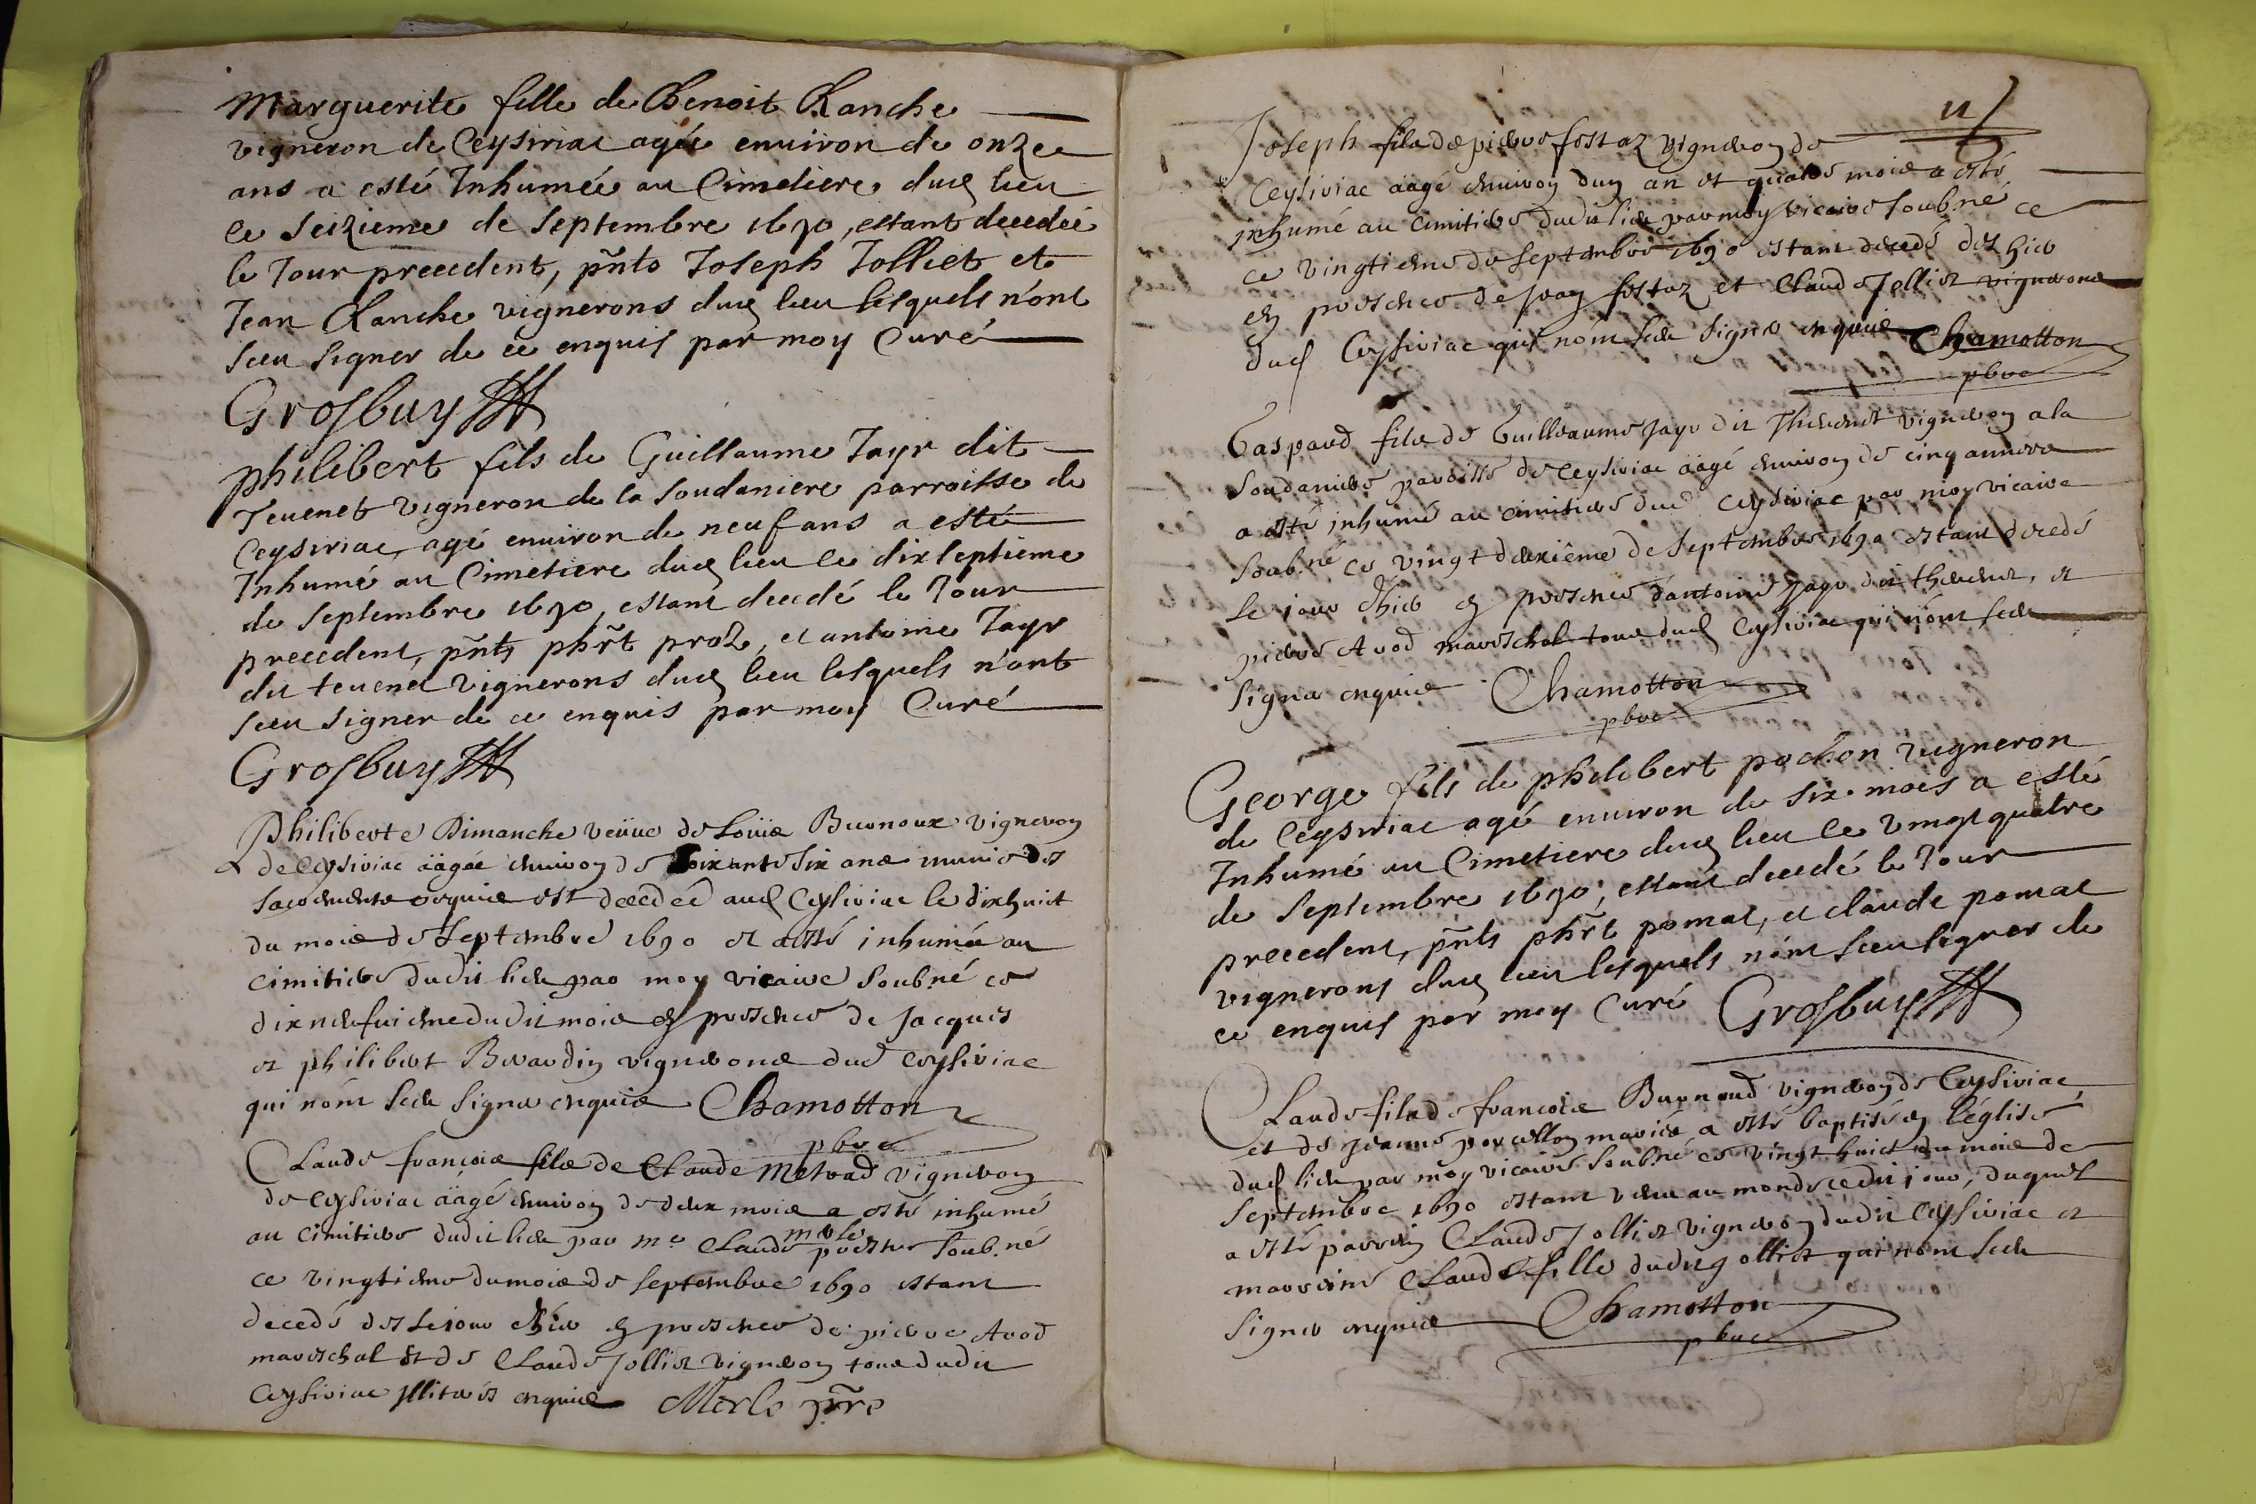 Marguerite fille de Benoit Ranche
vigneron de Ceysiriac agée environ de onze
ans a esté Inhumée au Cimetiere dud lieu
ce seizieme de septembre 1690, estant decedée
le Jour precedent, pñts Joseph Jolliet et
Jean Ranche vignerons dud lieu lesquels n'ont
sceu signer de ce enquis par moy Curé
Grosbuy
philibert fils de Guillaume Jayr dit
Tevenet vigneron de la soudaniere parroisse de
Ceysiriac, agé environ de neuf ans a esté
Inhumé au Cimetiere dud lieu ce dixseptieme
de septembre 1690, estant decedé le Jour
precedent, pñts phr̃t proz, et antoine Jayr
dit tevenet vignerons dud lieu lesquels n'ont
sceu signer de ce enquis par moy Curé
Grosbuy
Philiberte Dimanche veüve de Loüis Burnoux vigneron
de Ceysiriac äagée environ de soixante six ans munie des
sacrements requis est decedée aud Ceysiriac le dixhuict
du mois de septembre 1690 et a esté inhumée au
cimitiere dudit lieu par moy vicaire soub.né ce
dixneufuieme dudit mois en presence de Jacques
et philibert Berardin vignerons dud Ceysiriac
qui nónt sceu signer enquis Chamotton
pbre
Claude françois fils de Claude Metrad vigneron
de Ceysiriac äagé environ de deux mois a esté inhumé
au cimitiere dudit lieu par mre Claude merle prestre soub.né
ce vingtieme du mois de septembre 1690 estant
decedé des le jour d'hier en presence de pierre Avod
mareschal et de Claude Jolliet vigneron tous dudit
Ceysiriac Illiterés enquis Merle pr̃re
11
Joseph fils de pierre fostaz vigneron de
Ceysiriac äagé environ d'un an et quatre mois a esté
inhumé au cimitiere dudit lieu par moy vicaire soub.né ce
ce vingtieme de septembre 1690 estant decedé des hier
en presence de Jean fostaz et Claude Jolliet vignerons
dud Ceysiriac qui nónt sceu signer enquis Chamotton
pbre
Gaspard fils de Guilleaume Jayr dit Thevenet vigneron a la
Soudaniere paroisse de Ceysiriac äagé environ de cinq années
a esté inhumé au cimitiere dud Ceysiriac par moy vicaire
soub.né ce vingt deuxième de septembre 1690 estant decedé
le jour d'hier en presence d'antoine Jayr dit thevenet, et
pierre Avod mareschal tous dud Ceysiriac qui nónt sceu
signer enquis Chamotton
pbre
George fils de philibert pochon vigneron
de Ceysiriac agé environ de six mois a esté
Inhumé au Cimetiere dud lieu ce vingt quatre
de septembre 1690, estant decedé le Jour
precedent, pñts phr̃t pomat, et claude pomat
vignerons dud lieu lesquels nónt sceu signer de
ce enquis par moy Curé Grosbuy
Claude fils de françois Burnoud vigneron de Ceysiriac,
et de jeanne porcellon mariés a esté baptisé en l'église
dud lieu par moy vicaire soub.né ce vingt huict du mois de
septembre 1690 estant venu au monde cedit jour, duquel
a esté parrein Claude Jolliet vigneron dudit Ceysiriac et
marreine Claude fille dudit Jolliet qui nónt sceu
signer enquis Chamotton
pbre